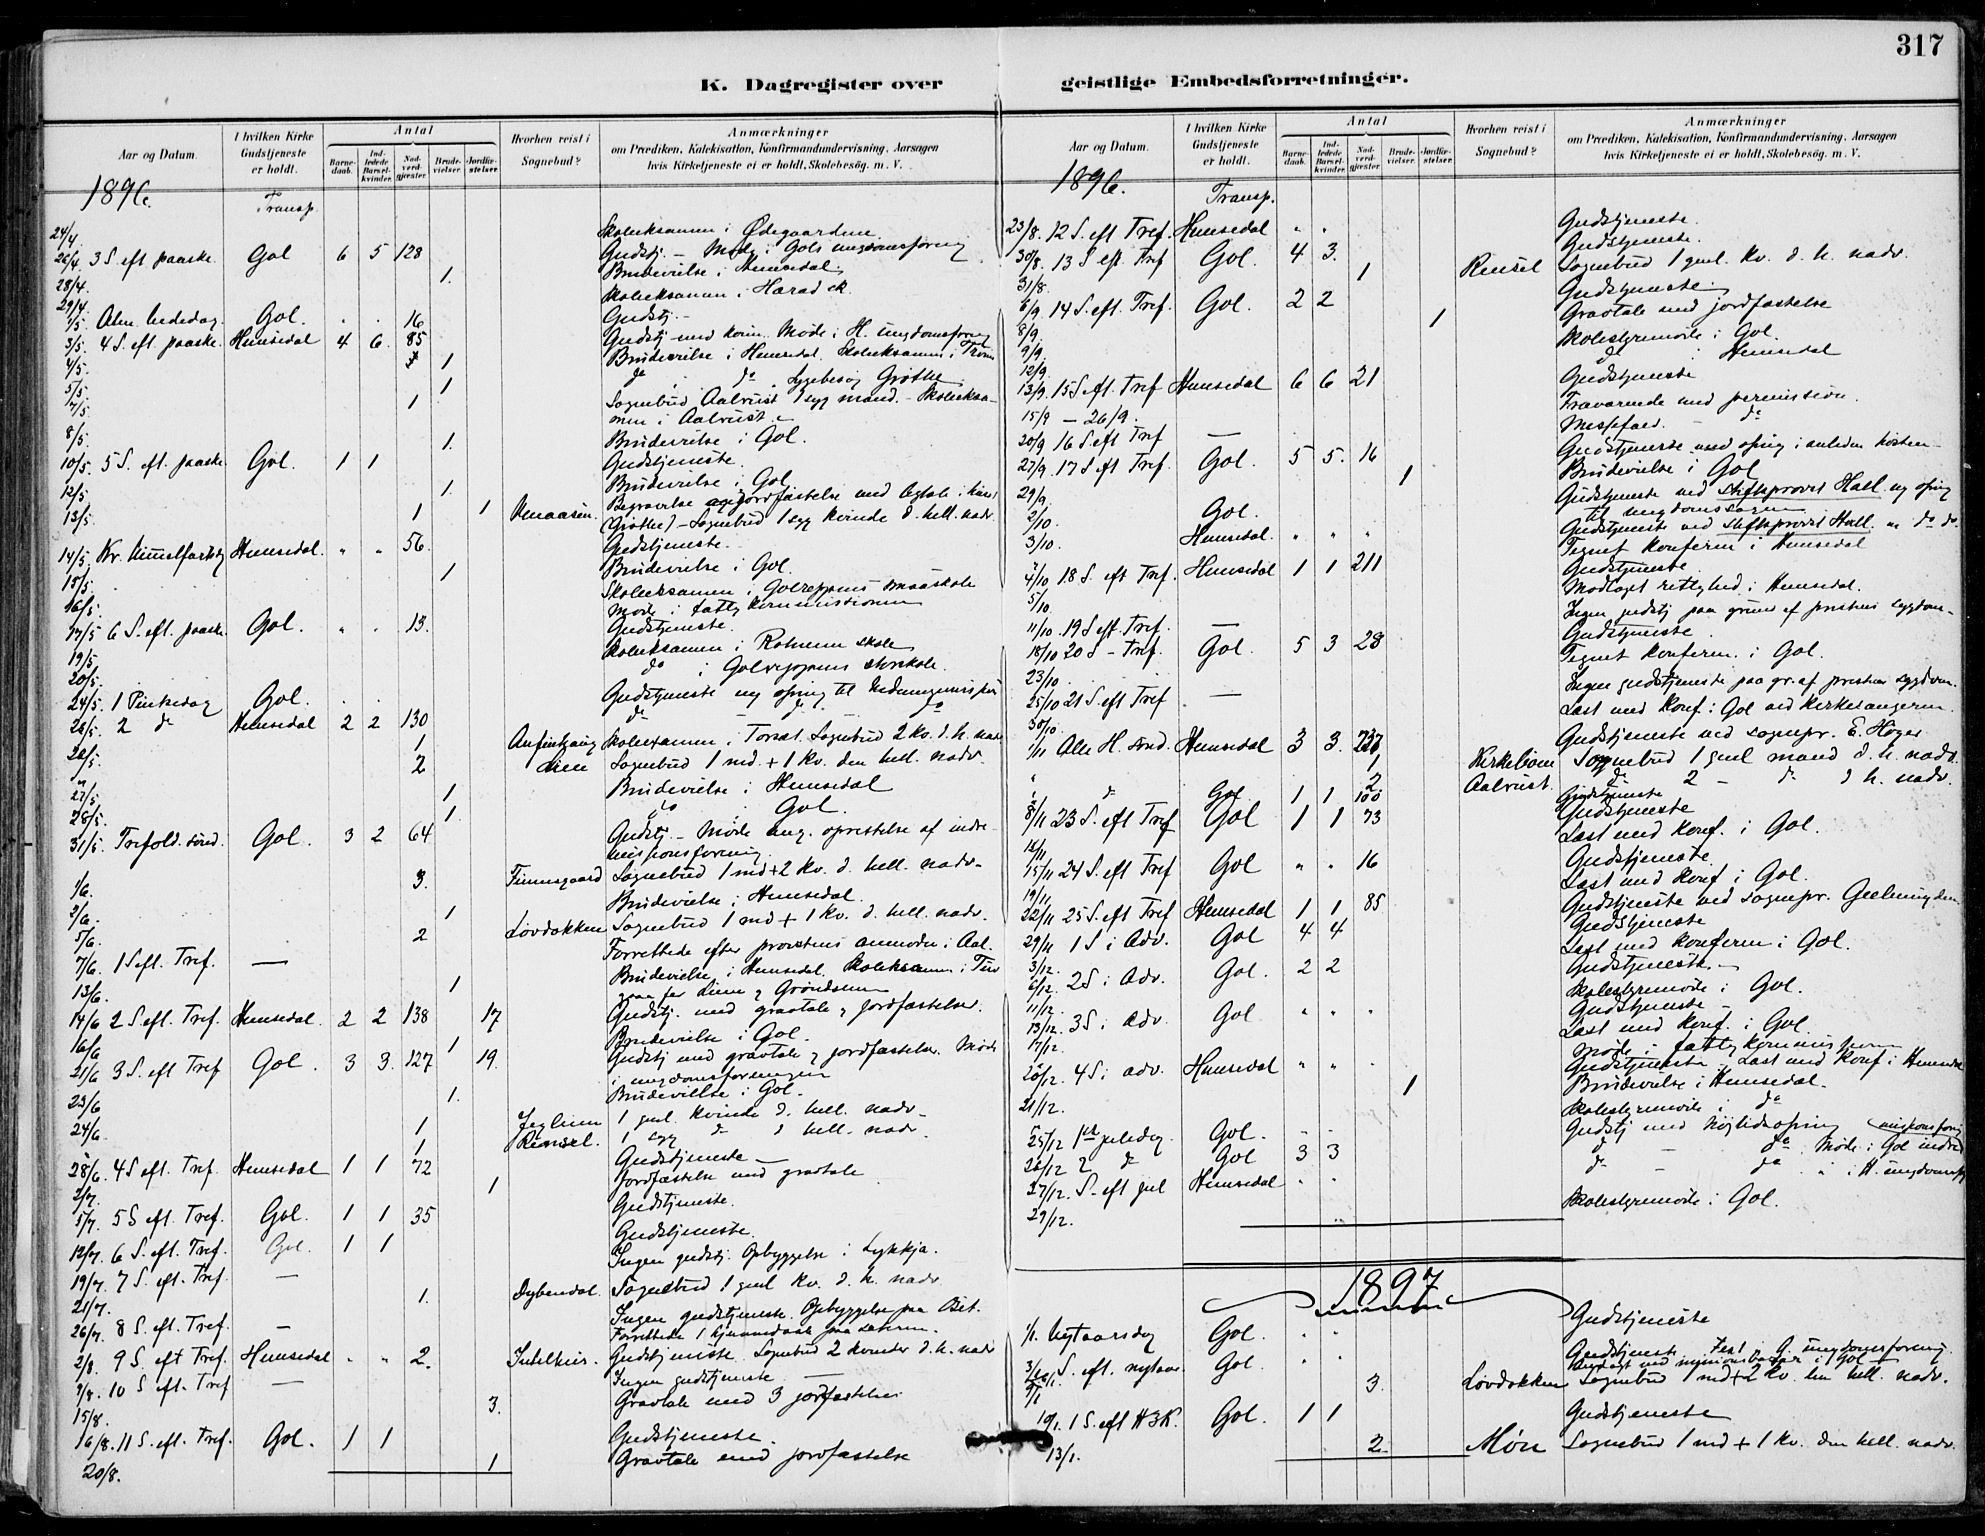 317
K. Dagregister over geistlige Embedsforretninger.
Aar og Datum.
I hvilken Kirke Gudstjeneste er holdt.
Antal
Barne-daab.
Ind-ledede Barsel-kvinder.
Nad-verd-gjæster.
Brude-vielser.
Jordfæ-stelser.
Hvorhen reist i Sognebud?
Anmærkninger
om Prædiken, Katekisation, Konfirmandundervisning, Aarsagen
hvis Kirketjeneste ei er holdt, Skolebesög. m. V.
1896. Transp.
24/4. Skoleeksamen i Ødegaardene
26/4. 3 S. eft paaske. Gol 6 5 128 Gudstj. – Møde i Gols ungdomsforening
28/4. 1. Brudevielse i Hemsedal.
29/4. Skoleeksamen i Hærad sk.
1/5. Alm. bededag Gol. . . 16 Gudstj. –
3/5. 4 S. eft. paaske. Hemsedal 4 6 85 Gudstj. med konf. Møde i H. ungdomsforen.
4/5. 1 Brudevielse i Hemsedal. Skoleeksamen i
5/5. 1 do do Sygebesøg Grøthe
7/5. 1 Sognebud Aalrust 1 syg mand. – Skoleeksa-
men i Aalrust.
8/5. 1. Brudevielse i Gol.
10/5. 5 S. eft. paaske. Gol. 1 1 Gudstjeneste.
12/5 1. Brudevielse i Gol.
13/5. 1 1 Begravelse og jordfæstelse med ligtale i
(Grøthe) – Sognebud 1 syg kvinde d. hell. nadv.
14/5. Kr. himmelfartsdg Hemsedal. " " 56 Gudstjeneste.
15/5. 1 Brudevielse i Gol.
16/5. Skoleeksamen i Golreppens smaaskole
Møde i fattigkommissionen
17/5 6 S. eft. paaske. Gol. " . 13. Gudstjeneste.
19/5. Skoleeksamen i skole
20/5. do i Golreppens storskole.
24/5. 1 Pinsedag Gol. . . Gudstjeneste og ofring til
25/5. 2 do Hemsedal 2 2 130 do – do do
26/5. 1 Skoleeksamen i Torset. Sognebud 2 kv. d. h. nadv
2 Sognebud 1 md. + 1 kv. den hell. nadv.
27/5. 1 Brudevielse i Hemsedal
28/5. 1. do i Gol.
31/5. Trefold. sønd. Gol. 3 2 64 Gudstj. – Møde ang. oprettelse af indre-
missionsforening.
1/6. 3. Finnesgaard Sognebud 1 md + 2 kv. d. hell. nadv.
2/6. 1 Brudevielse i Hemsedal.
5/6. 2 Løvdokken Sognebud 1 md + 1 kv. d. hell. nadv.
7/6. 1 S eft. Tref. — Forrettede efter provstens anmodn. i Aal.
13/6. 1 Brudevielse i Hemsedal. Skoleeksamen i
14/6 2 S. eft. Tref. Hemsedal. 2 2 138 17 Gudstj. med gravtale og jordfæstelser.
16/6 1 Brudevielse i Gol.
21/6 3 S. eft Tref Gol. 3 3. 127 19. Gudstj med gravtale og jordfæstelse. Møde
i ungdomsforeningen
23/6 1. Brudevielse i Gol.
24/6. 1 1 gml. kvinde d. hell. nadv.
1 Rensel. 1 syg do d hell. nadv.
28/6. 4 S eft. Tref. Hemsedal 1 1 72 Gudstjeneste
2/7. 1 Jordfæstelse med gravtale
5/7. 5 S eft. Tref. Gol. 1 1 35 Gudstjeneste.
12/7. 6 S. eft. Tref. Gol. 1 1 Gudstjeneste.
19/7. 7 S. eft. Tref — Ingen gudstj. Opbyggelse i Lykkja.
21/7. 1. Dybendal. Sognebud 1 gml kv. d. h. nadv
26/7. 8 S. eft. Tref. — Ingen gudstjeneste. Opbyggelse paa
Forrettede 1 hjemmedaab paa
2/8. 9 S. eft Tref. Hemsedal . " 2. Gudstjeneste. Sognebud 2 kvinder d. h. nadv
9/8. 10 S. eft. Tref — Ingen gudstjeneste
15/8. 3. Gravtale med 3 jordfæstelser
16/8. 11 S. eft. Tref. Gol. 1 1 Gudstjeneste.
20/8. 1 Gravtale med jordfæstelse
Aar og Datum.
I hvilken Kirke Gudstjeneste er holdt.
Antal
Barne-daab.
Ind-ledede Barsel-kvinder.
Nad-verd-gjæster.
Brude-vielser.
Jordfæ-stelser.
Hvorhen reist i Sognebud?
Anmærkninger
om Prædiken, Katekisation, Konfirmandundervisning, Aarsagen
hvis Kirketjeneste ei er holdt, Skolebesög. m. V.
1896. Transp.
23/8. 12 S. eft Tref. Hemsedal " . Gudstjeneste.
30/8. 13 S eft Tref Gol. 4 3. Gudstjeneste.
31/8. 1 Rensel Sognebud 1 gml. kv. d. h. nadv.
6/9. 14 S. eft. Tref. Gol. 2 2 Gudstjeneste
8/9. 1 Gravtale med jordfæstelse
9/9. Skolestyremøde i Gol.
12/9. do i Hemsedal
13/9. 15 S. eft. Tref Hemsedal 6 6 21 Gudstjeneste
15/9 — 26/9. Fraværende med permission.
20/9 16 S. eft Tref — Messefald. – do
27/9. 17 S eft Tref. Gol. 5 5. 16 Gudstjeneste med ofring i anledn høsten
29/9. 1 Brudevielse i Gol
2/10. Gol. Gudstjeneste ved stiftsprovst Hall og ofring
til ungdomssagen
3/10. Hemsedal. " " " Gudstjeneste ved stiftsprovst Hall. do do
Tegnet konferm i Hemsedal
4/10 18 S. eft Tref. Hemsedal 1 1 211 Gudstjeneste.
5/10. Modtaget rettighed i Hemsedal.
11/10. 19 S eft. Tref. — Ingen gudstj paa grund af prestens sygdom.
18/10 20 S – Tref. Gol. 5 3 28 Gudstjeneste.
23/10. Tegnet konferm. i Gol.
25/10 21 S. eft Tref — Ingen gudstjeneste paa gr. af prestens sygdom.
30/10. Læst med konf. i Gol ved kirkesangeren.
1/11 Alle H. sønd. Hemsedal 3 3. Gudstjeneste ved sognepr. E. Høyer
1 Kirkebøen Sognebud 1 gml mand d. h. nadv.
2 Aalrust. do 2 – do d h. nadv.
do Gol 1 1 100 Gudstjeneste
8/11 23 S. eft Tref Gol 1 1 73 Gudstjeneste
Læst med konf. i Gol.
15/11 24 S. eft Tref Gol " " 16 Gudstjeneste.
19/11 Læst med konf. i Gol.
22/11 25 S. eft Tref Hemsedal 1 1 85 Gudstjeneste ved sognepr. Geelmuyden
29/11 1 S i Adv. Gol 4 4 Gudstjeneste
3/12. Læst med konferm i Gol.
6/12. 2 S i Adv. Gol. 2 2 Gudstjeneste.
11/12. Skolestyremøde i Gol.
13/12. 3 S i Adv. Gol " " . Gudstjeneste
17/12. Læst med konf. i Gol.
Møde i fattigkommissionen
20/12. 4 S i adv. Hemsedal " " . Gudstjeneste. Læst med konf i Hemsedal
21/12. 1 Brudevielse i Hemsedal.
Skolestyremøde i do
25/12 1ste juledag Gol. . . Gudstj med høitidsofring
26/12 2 do Gol 3 3 do – do Møde i Gol indre missionsforening
27/12. S. eft jul Hemsedal . . do – do " i H. ungdomsf.
29/12. Skolestyremøde i Gol.
1897
1/1. Nytaarsdag Gol. . . Gudstjeneste
3/1. S. eft. nytaar Gol. . . Gudstjeneste Fest i G. ungdomsforening.
3. Løvdokken Sognebud 1 md + 2 kv. den hell. nadv.
10/1. 1 S. eft H3K. Gol. 1 1 Gudstjeneste
13/1. 2 Møen Sognebud 1 md + 1 kv. den hell. nadv.